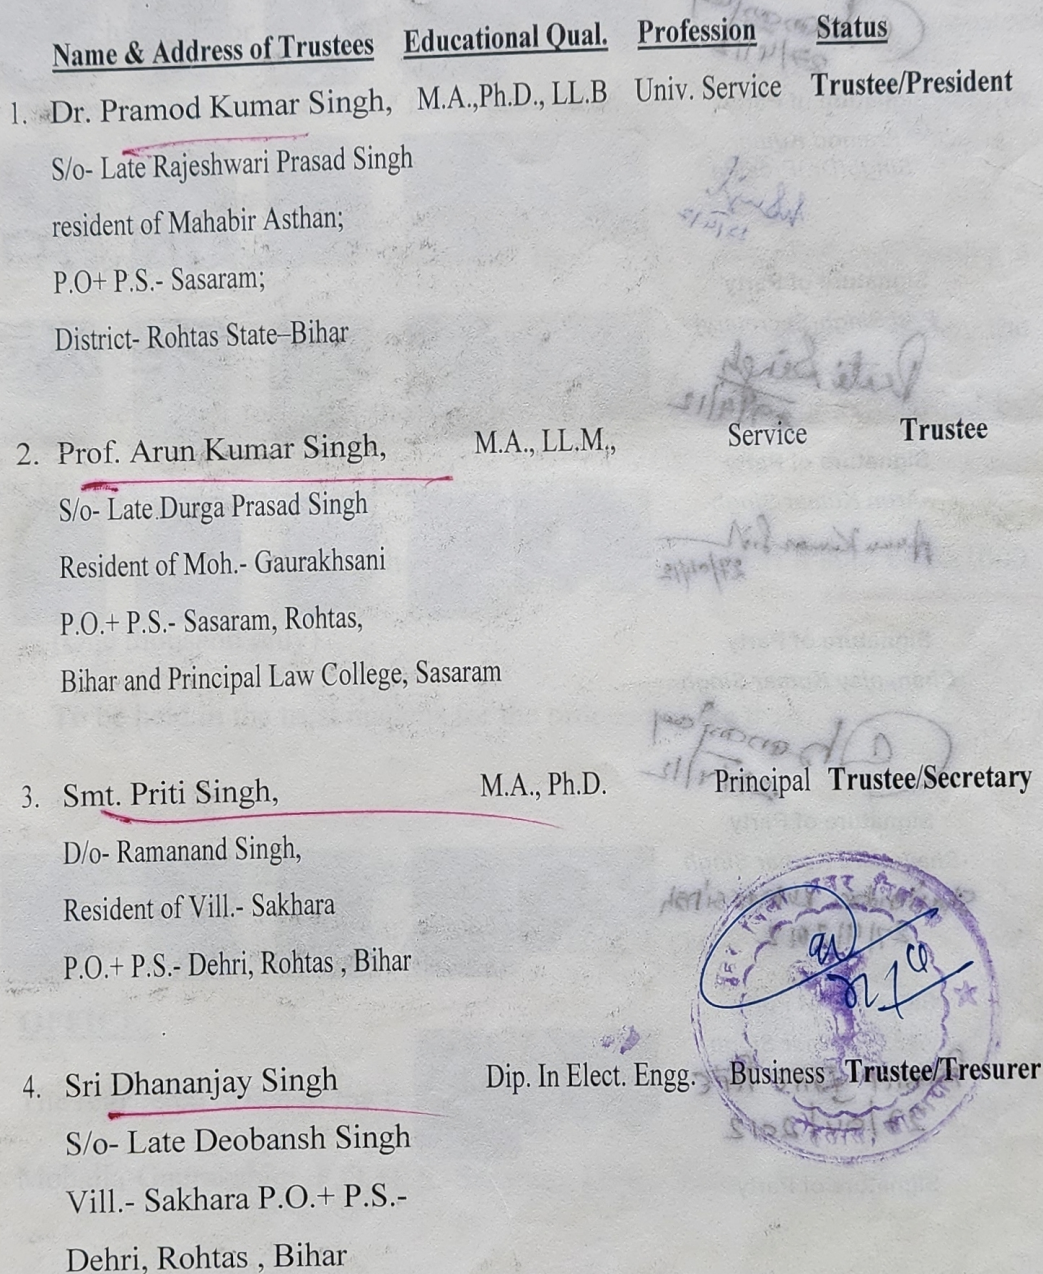 Name & Address of Trustees Educational Qual. Profession Status
1. Dr. Pramod Kumar Singh, M.A.,Ph.D., LL.B Univ. Service Trustee/President
S/o- Late Rajeshwari Prasad Singh
resident of Mahabir Asthan;
P.O+ P.S.- Sasaram;
District- Rohtas State–Bihar
2. Prof. Arun Kumar Singh, M.A., LL.M., Service Trustee
S/o- Late Durga Prasad Singh
Resident of Moh.- Gaurakhsani
P.O.+ P.S.- Sasaram, Rohtas,
Bihar and Principal Law College, Sasaram
3. Smt. Priti Singh, M.A., Ph.D. Principal Trustee/Secretary
D/o- Ramanand Singh,
Resident of Vill.- Sakhara
P.O.+ P.S.- Dehri, Rohtas , Bihar
4. Sri Dhananjay Singh Dip. In Elect. Engg. Business Trustee/Tresurer
S/o- Late Deobansh Singh
Vill.- Sakhara P.O.+ P.S.-
Dehri, Rohtas , Bihar